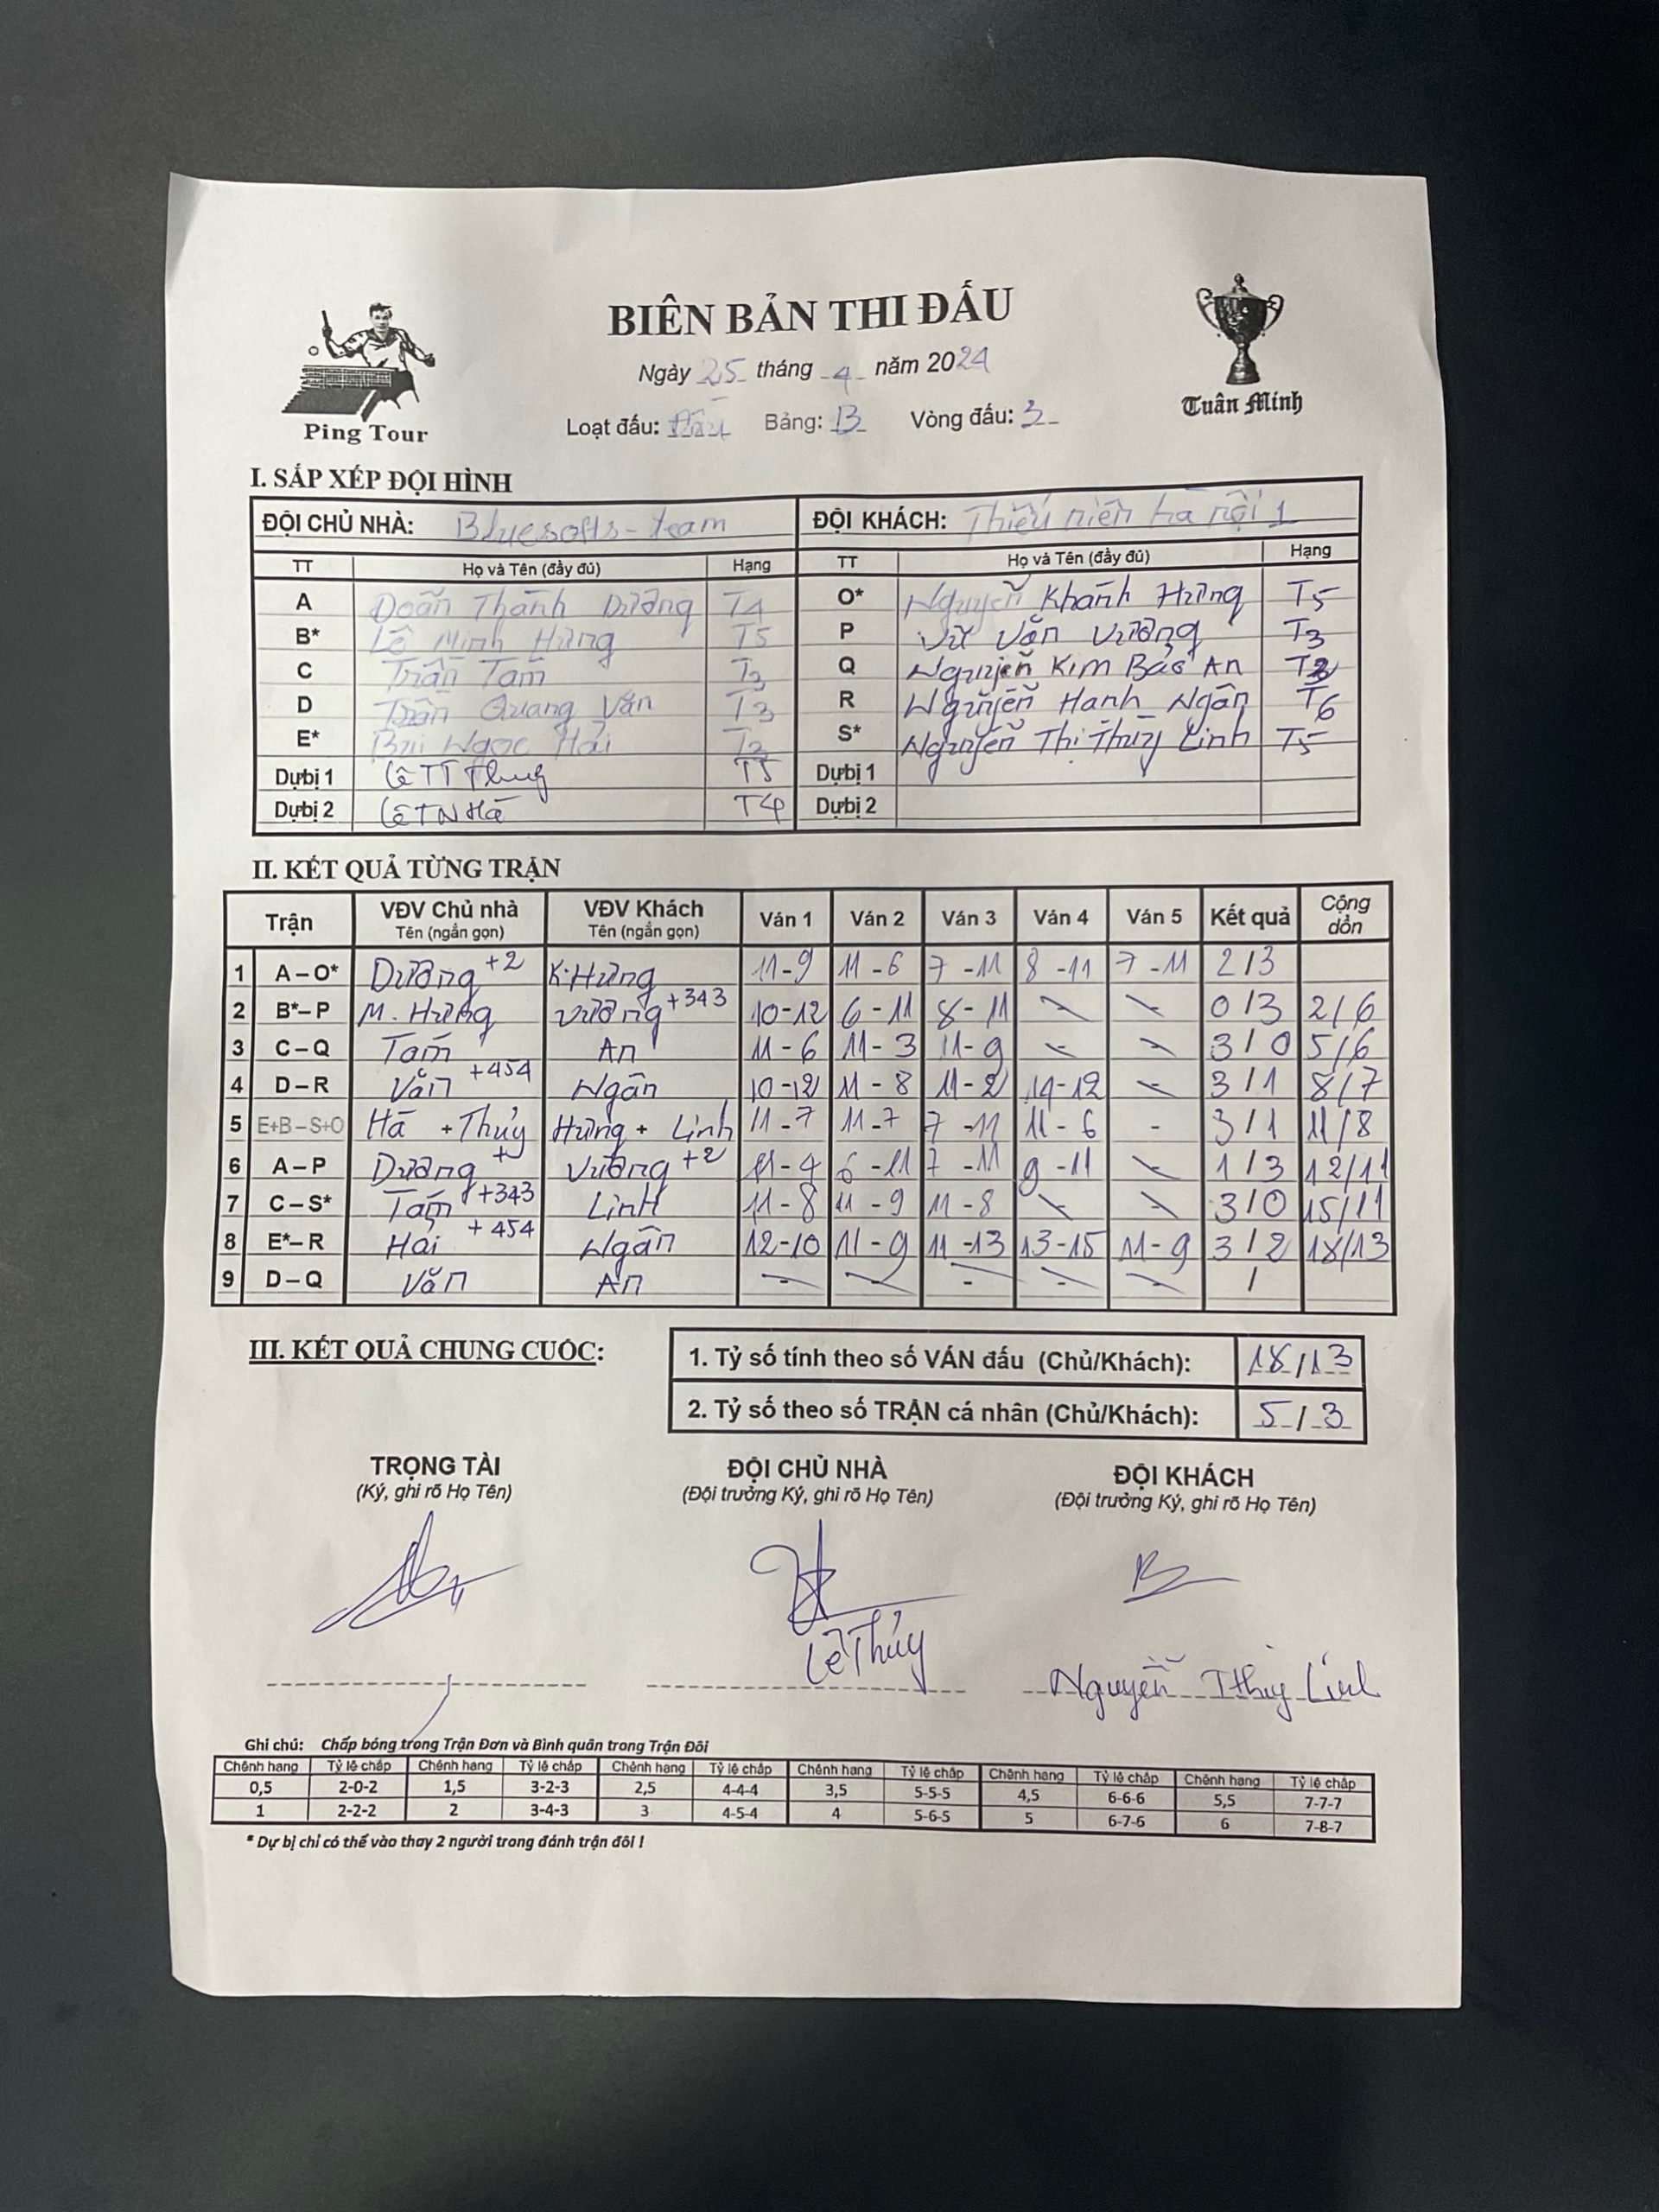 BIÊN BẢN THI ĐẤU
Ngày 25 tháng 4 năm 2024
Loạt đấu: Đầu Bảng: B Vòng đấu: 3
Ping Tour
Tuân Minh
I. SẮP XẾP ĐỘI HÌNH
ĐỘI CHỦ NHÀ: Bluesofts-team ĐỘI KHÁCH: Thiếu niên hà nội 1
TT Họ và Tên (đầy đủ) Hạng TT Họ và Tên (đầy đủ) Hạng
A Doãn Thành Dương T4 O* Nguyễn Khánh Hưng T5
B* Lê Minh Hùng T5 P Vũ Văn Vương T3
C Trần Tám T3 Q Nguyễn Kim Bảo An
D Trần Quang Văn T3 R Nguyễn Hạnh Ngân T6
E* Bùi Ngọc Hải T3 S* Nguyễn Thị Thùy Linh T5
Dự bị 1 Lê TT Thuy T5 Dự bị 1
Dự bị 2 Lê TN Hà T4 Dự bị 2
II. KẾT QUẢ TỪNG TRẬN
Trận VĐV Chủ nhà Tên (ngắn gọn) VĐV Khách Tên (ngắn gọn) Ván 1 Ván 2 Ván 3 Ván 4 Ván 5 Kết quả Cộng dồn
1 A – O* Dương +2 K.Hưng 11-9 11-6 7-11 8-11 7-11 2/3
2 B* – P M. Hùng Vương +343 10-12 6-11 8-11 - - 0/3 2/6
3 C – Q Tám An 11-6 11-3 11-9 - - 3/0 5/6
4 D – R Văn +454 Ngân 10-12 11-8 11-2 14-12 - 3/1 8/7
5 E+B – S+O Hà + Thủy Hưng + Linh 11-7 11-7 7-11 11-6 - 3/1 11/8
6 A – P Dương + Vương +2 11-4 6-11 7-11 9-11 - 1/3 12/11
7 C – S* Tám +343 Linh 11-8 11-9 11-8 - - 3/0 15/11
8 E* – R Hải +454 Ngân 12-10 11-9 11-13 13-15 11-9 3/2 18/13
9 D – Q Văn An - - - - - /
III. KẾT QUẢ CHUNG CUỘC:
1. Tỷ số tính theo số VÁN đấu (Chủ/Khách): 18/13
2. Tỷ số theo số TRẬN cá nhân (Chủ/Khách): 5/3
TRỌNG TÀI ĐỘI CHỦ NHÀ ĐỘI KHÁCH
(Ký, ghi rõ Họ Tên) (Đội trưởng Ký, ghi rõ Họ Tên) (Đội trưởng Ký, ghi rõ Họ Tên)
Lê Thủy
Nguyễn T thùy Linh
Ghi chú: Chấp bóng trong Trận Đơn và Bình quân trong Trận Đôi
Chênh hạng Tỷ lệ chấp Chênh hạng Tỷ lệ chấp Chênh hạng Tỷ lệ chấp Chênh hạng Tỷ lệ chấp Chênh hạng Tỷ lệ chấp Chênh hạng Tỷ lệ chấp
0,5 2-0-2 1,5 3-2-3 2,5 4-4-4 3,5 5-5-5 4,5 6-6-6 5,5 7-7-7
1 2-2-2 2 3-4-3 3 4-5-4 4 5-6-5 5 6-7-6 6 7-8-7
* Dự bị chỉ có thể vào thay 2 người trong đánh trận đôi !